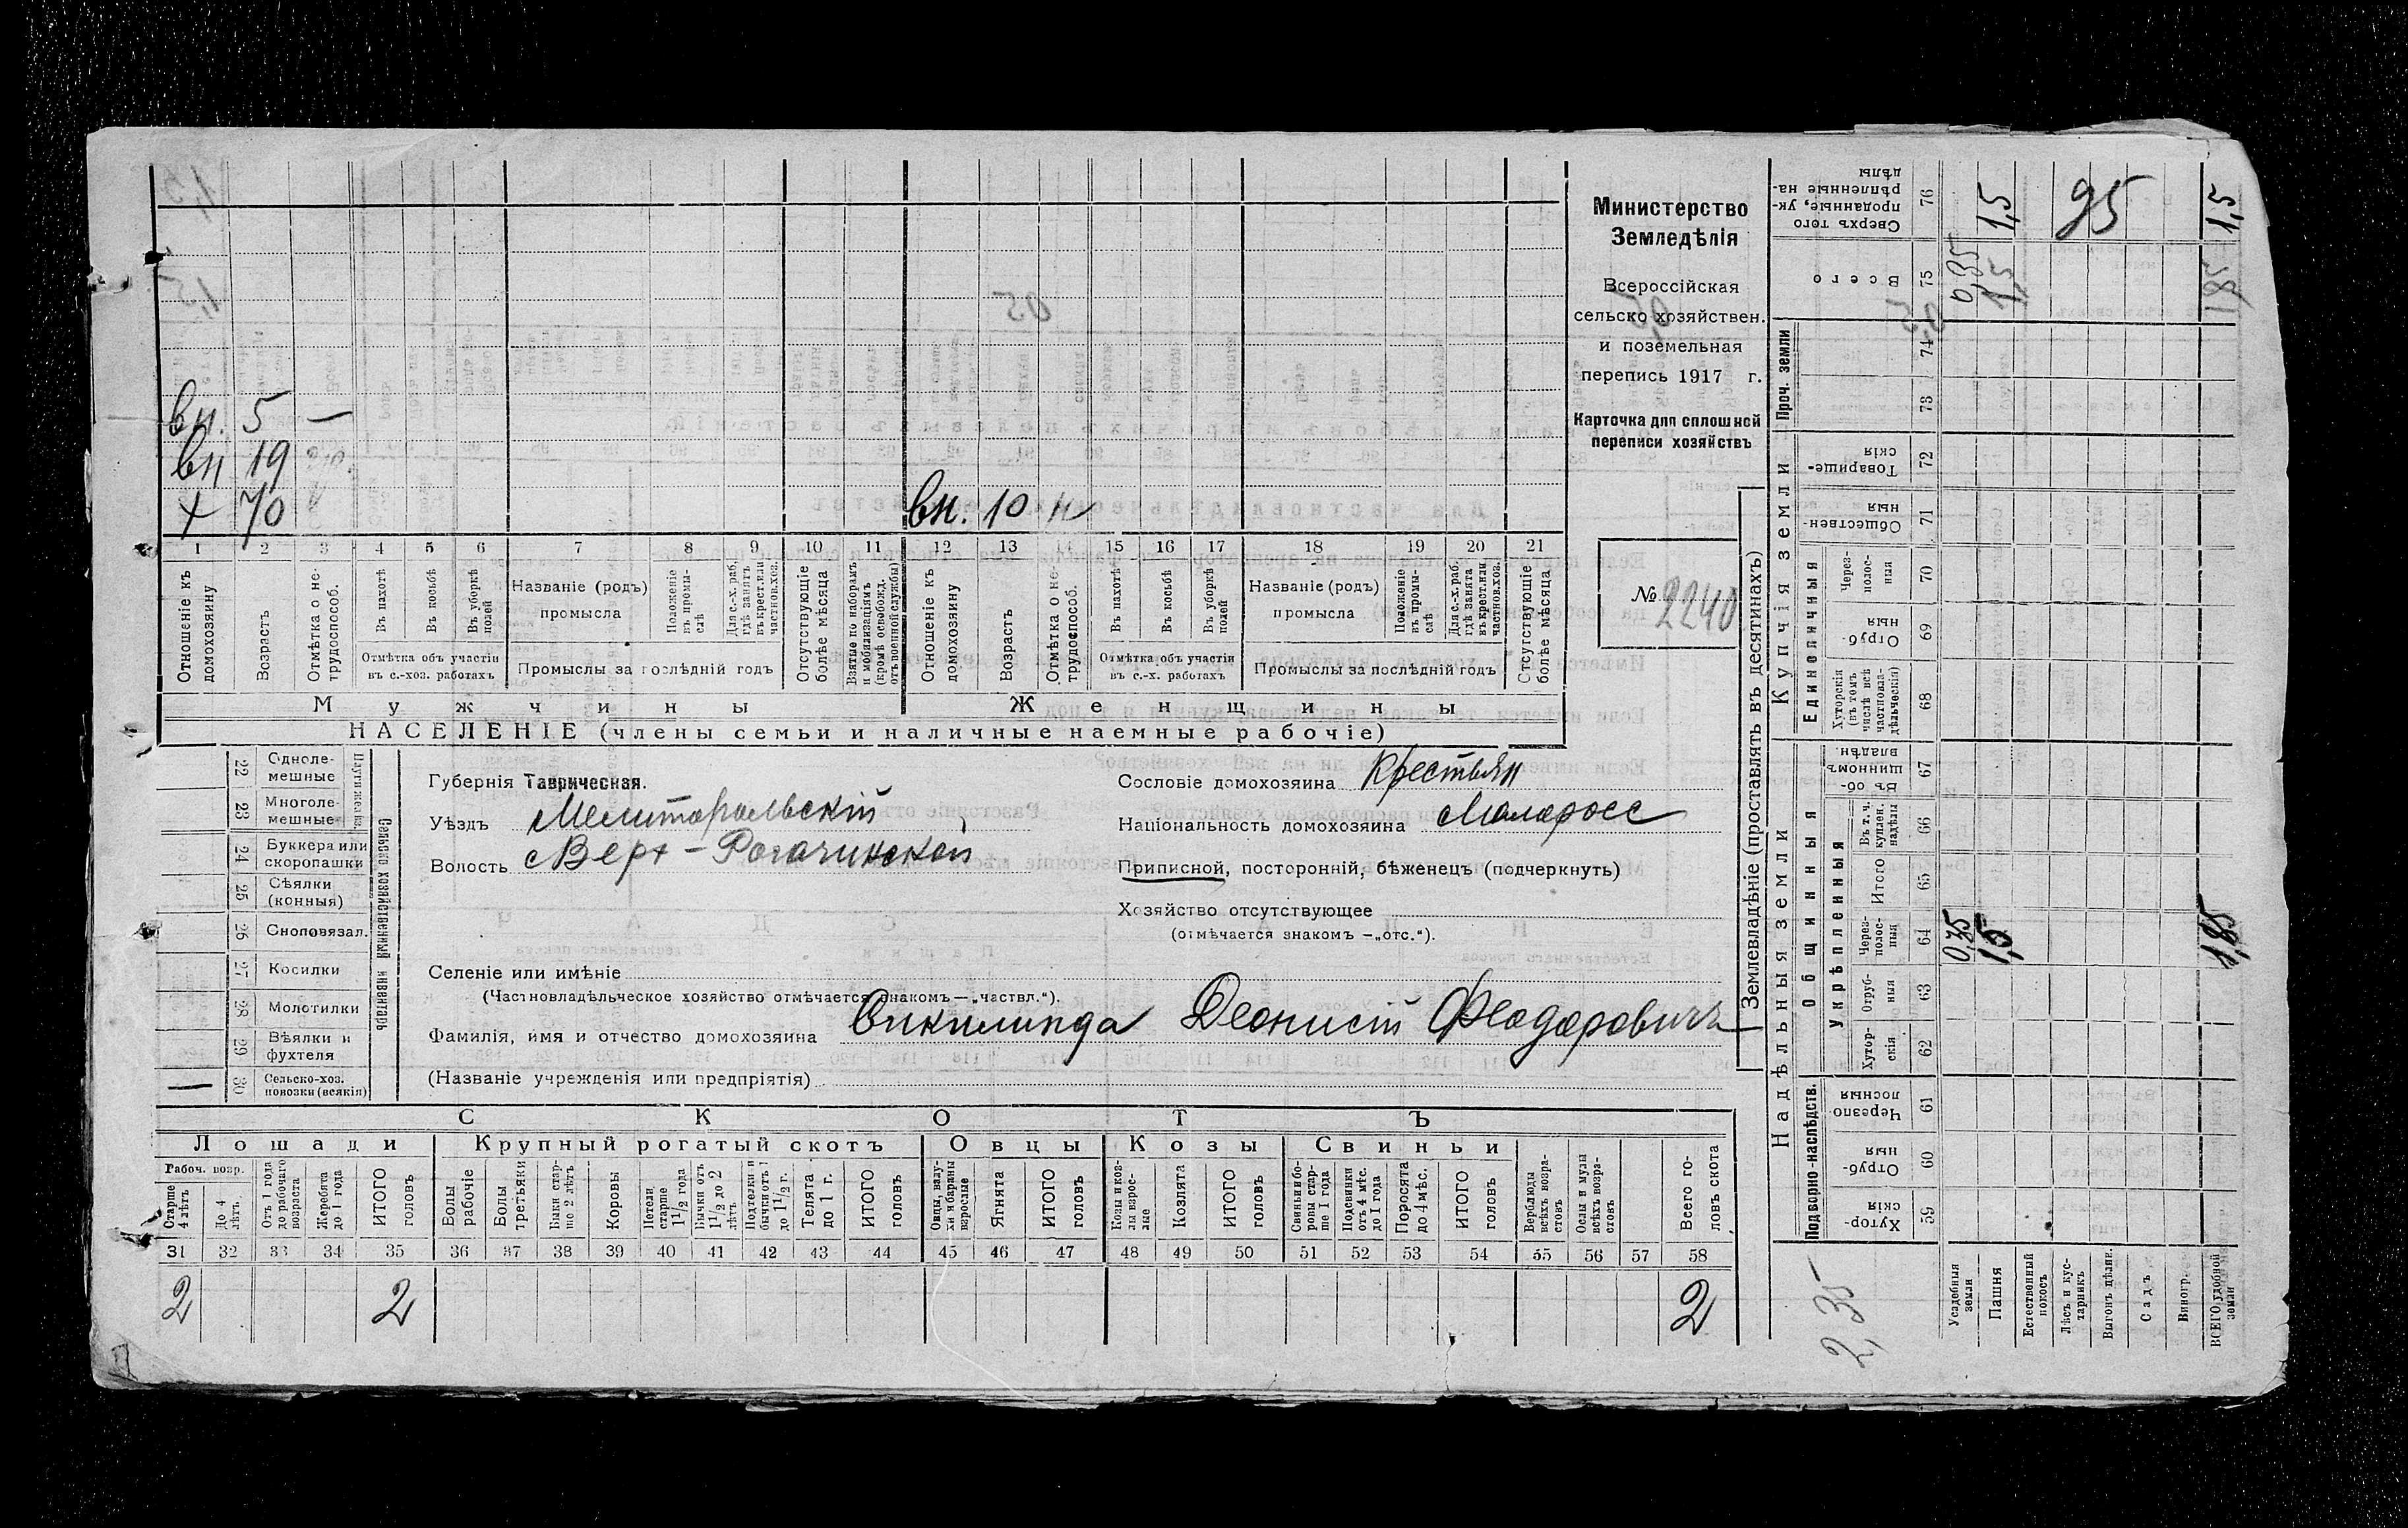 Министерство
Земледѣлія
Всероссійская
сельско хозяйствен.
и поземельная
перепись 1917 г.
Карточка для сплошной
переписи хозяйствъ
№ 2240
вн. 5 —
вн 19
+ 70
вн. 10 н
1 2 3 4 5 6 7 8 9 10 11 12 13 14 15 16 17 18 19 20 21
Отношеніе къ домохозяину
Возрастъ
Отмѣтка о не-трудоспособ.
Въ пахотѣ
Въ косьбѣ
Въ уборкѣ полей
Отмѣтка объ участіи
въ с.-хоз. работахъ
Названіе (родъ)
промысла
Положеніе въ промы-слѣ
Для с.-х. раб. гдѣ занятъ въ крест. или частнов. хоз.
Промыслы за послѣдній годъ
Отсутствующіе болѣе мѣсяца
Взятые по наборамъ и мобилизаціямъ (кромѣ освобожд. отъ военной службы)
Отношеніе къ домохозяину
Возрастъ
Отмѣтка о не-трудоспособ.
Въ пахотѣ
Въ косьбѣ
Въ уборкѣ полей
Отмѣтка объ участіи
въ с.-х. работахъ
Названіе (родъ)
промысла
Положеніе въ промы-слѣ
Для с.-х. раб. гдѣ занята въ крест. или частнов. хоз.
Промыслы за послѣдній годъ
Отсутствующіе болѣе мѣсяца
Мужчины
Женщины
НАСЕЛЕНІЕ (члены семьи и наличные наемные рабочіе)
22 Одноле-мешные
23 Многоле-мешные
24 Буккера или скоропашки
25 Сѣялки (конныя)
26 Сноповязал.
27 Косилки
28 Молотилки
29 Вѣялки и фухтеля
— 30 Сельско-хоз. повозки (всякія)
Сельско хозяйственный инвентарь
Губернія Таврическая.
Уѣздъ Мелитопольскій
Волость Верх-Рогачикской
Сословіе домохозяина Крестьян
Національность домохозяина Малоросс
Приписной, посторонній, бѣженецъ (подчеркнуть)
Хозяйство отсутствующее
(отмѣчается знакомъ —„отс.“).
Селеніе или имѣніе
(Частновладѣльческое хозяйство отмѣчается знакомъ—„частвл.“).
Фамилія, имя и отчество домохозяина Деонисій Феодоровичъ
(Названіе учрежденія или предпріятія)
СКОТЪ
Лошади Крупный рогатый скотъ Овцы Козы Свиньи
Рабоч. возр.
Старше 4 лѣтъ
До 4 лѣтъ.
Отъ 1 года до рабочаго возраста
Жеребята до 1 года
ИТОГО головъ
Волы рабочіе
Волы третьяки
Быки стар-ше 2 лѣтъ
Коровы
Нетели старше 1½ года
Бычки отъ 1½ до 2 лѣтъ
Подтелки и бычки отъ 1 до 1½ г.
Телята до 1 г.
ИТОГО головъ
Овцы, валу-хи и бараны взрослые
Ягнята
ИТОГО головъ
Козы и коз-лы взрос-лые
Козлята
ИТОГО головъ
Свиньи и бо-ровы стар-ше 1 года
Подсвинки отъ 4 мѣс. до 1 года
Поросята до 4 мѣс.
ИТОГО головъ
Верблюды всѣхъ возра-стовъ
Ослы и мулы всѣхъ возра-стовъ
Всего го-ловъ скота
31 32 33 34 35 36 37 38 39 40 41 42 43 44 45 46 47 48 49 50 51 52 53 54 55 56 57 58
2 2 2
Землевладѣніе (проставлять въ десятинахъ)
Надѣльныя земли
Купчія земли
Проч. земли
Подворно-наслѣдств.
Общинныя
Укрѣпленныя
Единоличныя
Сверхъ того проданные, ук-рѣпленные на-дѣлы 76 1,5 95 1,5
Всего 75 0,35 1,5 1,85
74
73
Товарище-скія 72
Обществен-ныя 71
Через-полос-ныя 70
Отруб-ныя 69
Хуторскія (въ томъ числѣ всѣ частновла-дѣльческія) 68
Въ об-щинномъ владѣн. 67
Въ т. ч. куплен. надѣлы 66
Итого 65
Через-полос-ныя 64 0,35 1,5 1,85
Отруб-ныя 63
Хутор-скія 62
Черезпо-лосныя 61
Отруб-ныя 60
Хутор-скія 59
2,35
Усадебныя земли
Пашня
Естественный покосъ
Лѣсъ и кус-тарникъ
Выгонъ дѣлим.
Садъ
Виногр.
ВСЕГО удобной земли